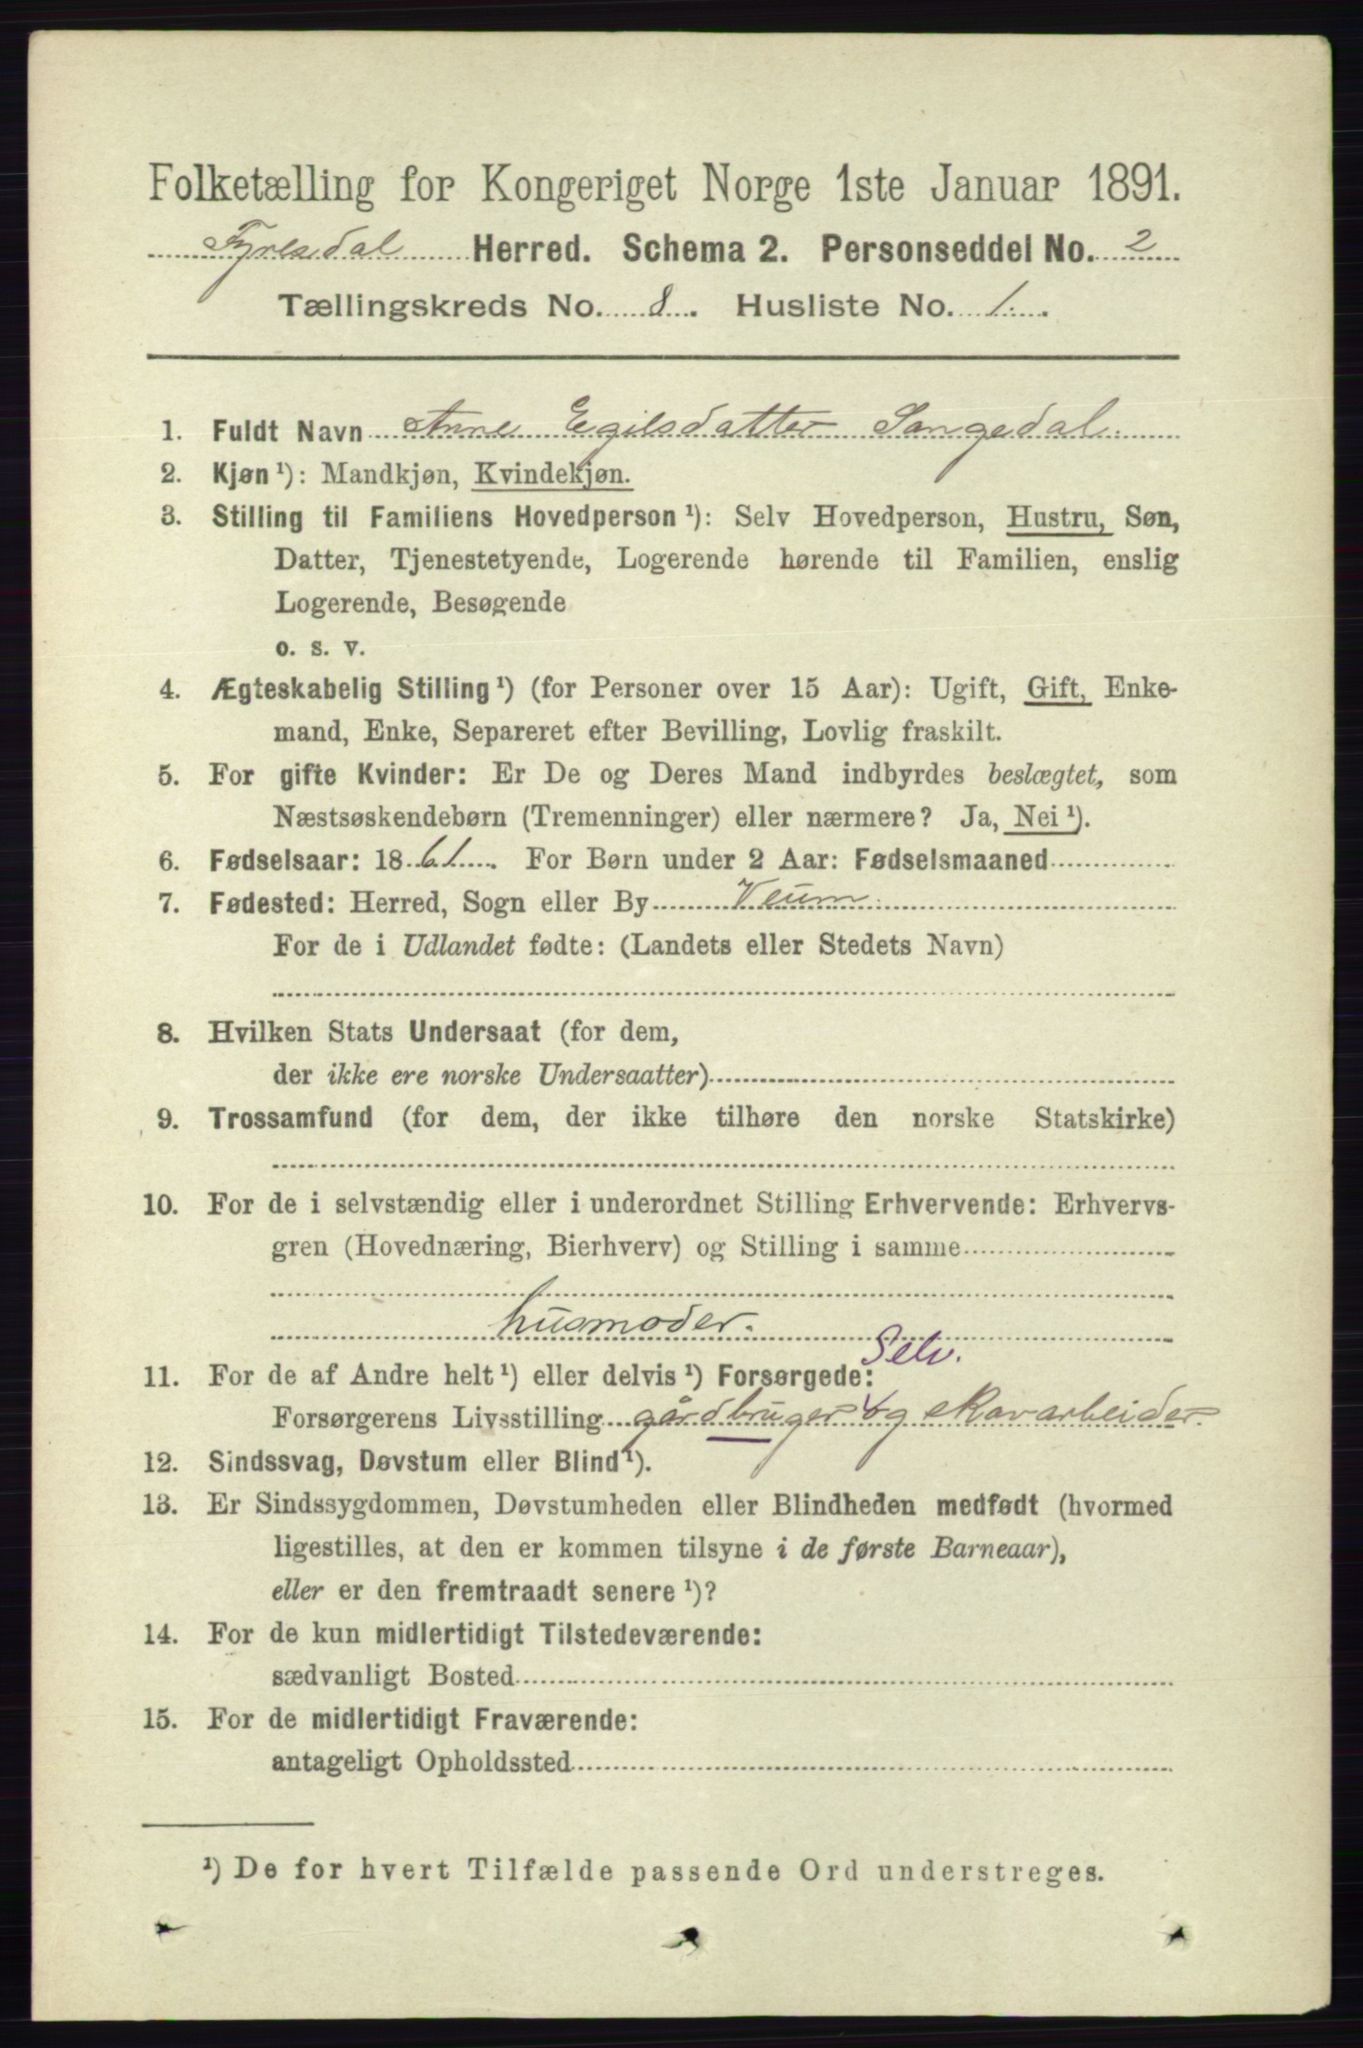 Folketælling for Kongeriget Norge 1ste Januar 1891.
Fyresdal Herred. Schema 2. Personseddel No. 2
Tællingskreds No. 8. Husliste No. 1.
1. Fuldt Navn Anne Egilsdatter Sangedal.
2. Kjøn¹): Mandkjøn, Kvindekjøn.
3. Stilling til Familiens Hovedperson¹): Selv Hovedperson, Hustru, Søn,
Datter, Tjenestetyende, Logerende hørende til Familien, enslig
Logerende, Besøgende
o. s. v.
4. Ægteskabelig Stilling¹) (for Personer over 15 Aar): Ugift, Gift, Enke-
mand, Enke, Separeret efter Bevilling, Lovlig fraskilt.
5. For gifte Kvinder: Er De og Deres Mand indbyrdes beslægtet, som
Næstsøskendebørn (Tremenninger) eller nærmere? Ja, Nei¹).
6. Fødselsaar: 1861. For Børn under 2 Aar: Fødselsmaaned
7. Fødested: Herred, Sogn eller By Veum
For de i Udlandet fødte: (Landets eller Stedets Navn)
8. Hvilken Stats Undersaat (for dem,
der ikke ere norske Undersaatter)
9. Trossamfund (for dem, der ikke tilhøre den norske Statskirke)
10. For de i selvstændig eller i underordnet Stilling Erhvervende: Erhvervs-
gren (Hovednæring, Bierhverv) og Stilling i samme
husmoder.
Selv.
11. For de af Andre helt¹) eller delvis¹) Forsørgede:
Forsørgerens Livsstilling gårdbruger og skovarbeider.
12. Sindssvag, Døvstum eller Blind¹).
13. Er Sindssygdommen, Døvstumheden eller Blindheden medfødt (hvormed
ligestilles, at den er kommen tilsyne i de første Barneaar),
eller er den fremtraadt senere¹)?
14. For de kun midlertidigt Tilstedeværende:
sædvanligt Bosted
15. For de midlertidigt Fraværende:
antageligt Opholdssted
¹) De for hvert Tilfælde passende Ord understreges.